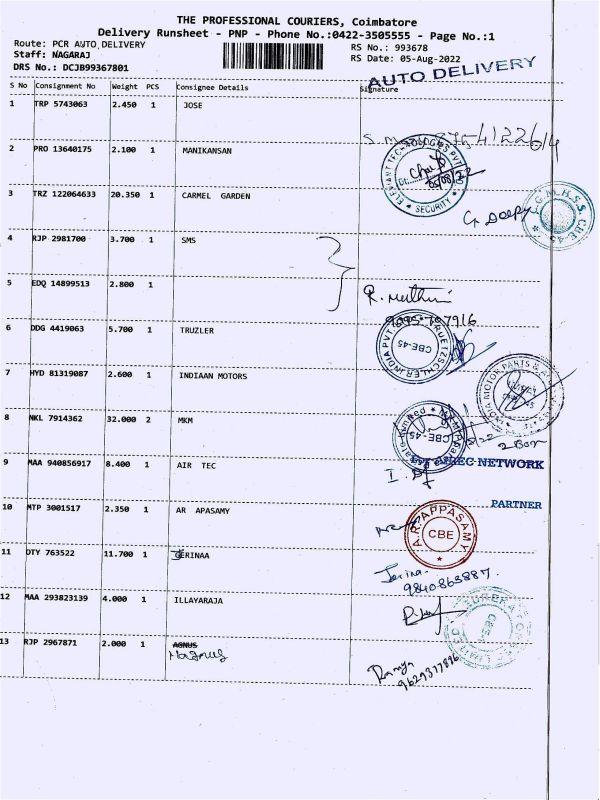 THE PROFESSIONAL COURIERS, Coimbatore
Delivery Runsheet - PNP - Phone No.:0422-3505555 - Page No.:1
Route: PCR AUTO DELIVERY
RS No.: 993678
Staff: NAGARAJ
RS Date: 05-Aug-2022
DRS No.: DCJB99367801
AUTO DELIVERY
S No Consignment No Weight PCS Consignee Details Signature
1 TRP 5743063 2.450 1 JOSE
2 PRO 13640175 2.100 1 MANIKANSAN
SECURITY
3 TRZ 122064633 20.350 1 CARMEL GARDEN
G Deepu
C.G.M.H.S.S. CBE-45
4 RJP 2981700 3.700 1 SMS
5 EDQ 14899513 2.800 1
R. Muthu
6 DDG 4419063 5.700 1 TRUZLER
CBE-45
7 HYD 81319087 2.600 1 INDIAAN MOTORS
8 NKL 7914362 32.000 2 MKM
CBE-45
2 Box
9 MAA 940856917 8.400 1 AIR TEC
NETWORK
PARTNER
10 MTP 3001517 2.350 1 AR APASAMY
A.R. APPASAMY
CBE
11 DTY 763522 11.700 1 JERINAA
Jerina
9840863887.
12 MAA 293823139 4.000 1 ILLAYARAJA
13 RJP 2967871 2.000 1 AGNUS
Magnus
Ramya